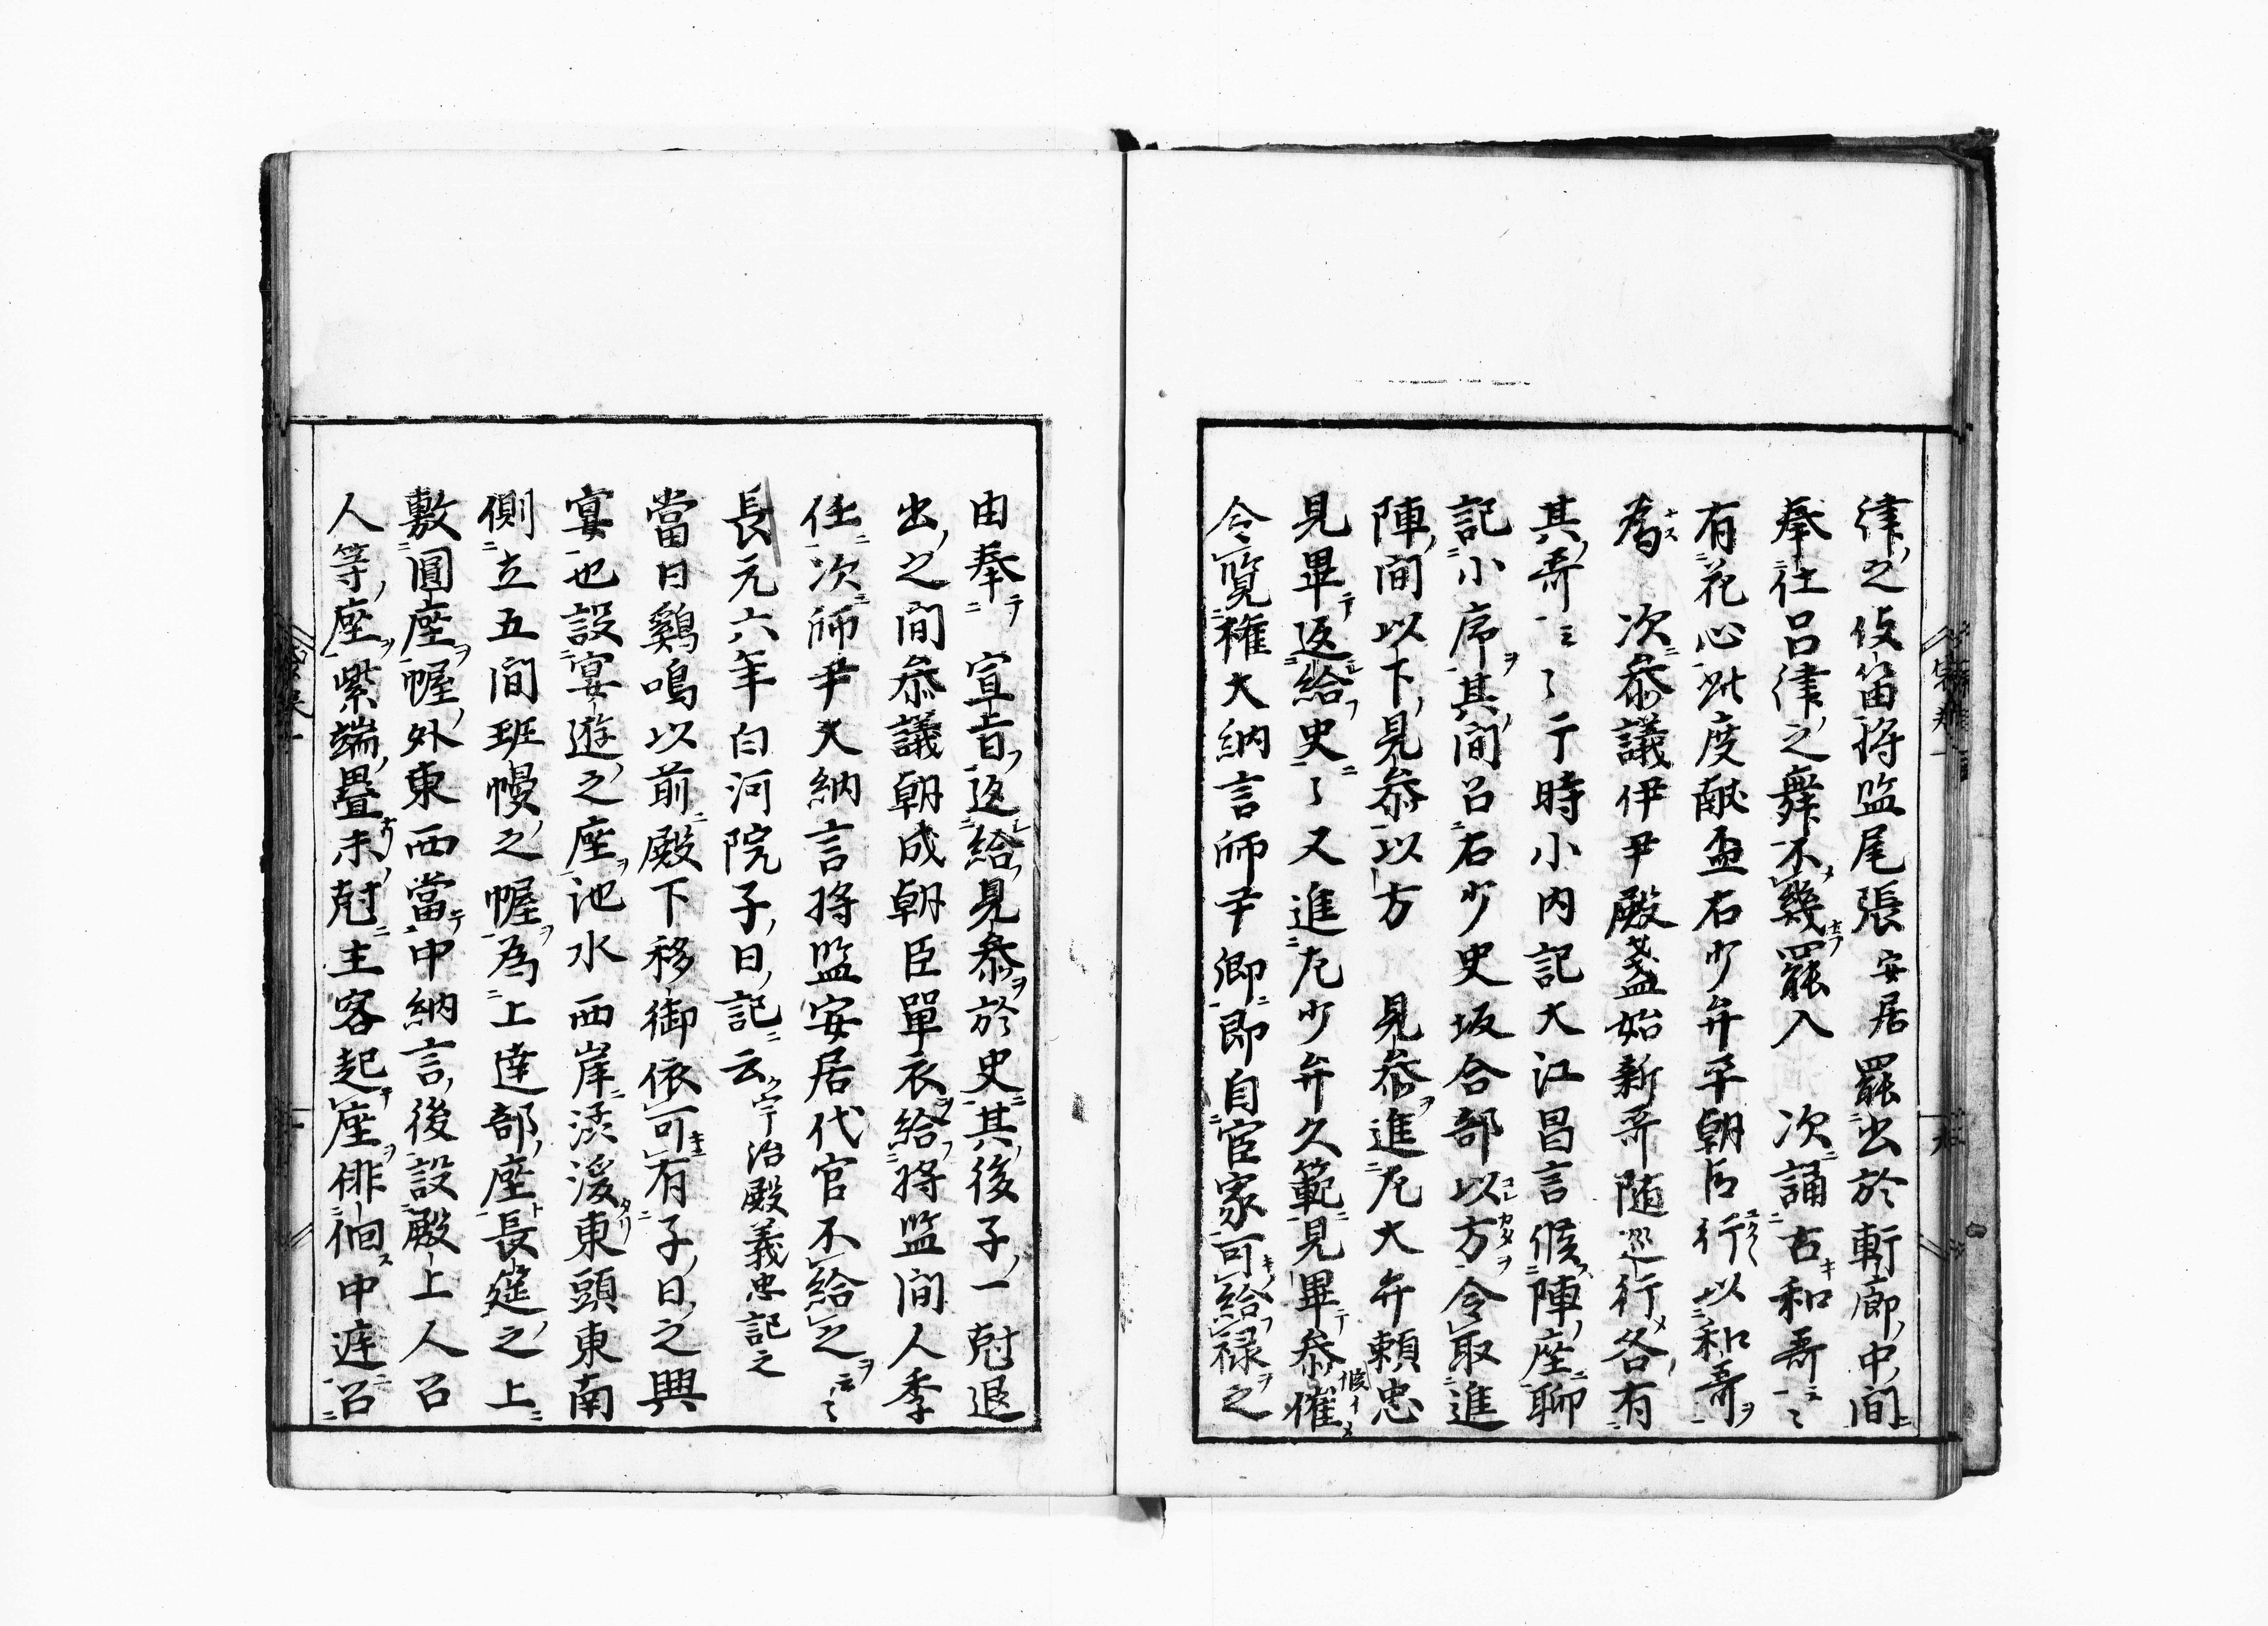 律之伎笛将監尾張安居罷出於軒廊中間
奉仕呂律之舞不幾罷入　次誦古和哥云々
有花心此度献盃右少弁平朝臣行以和哥
為　次参議伊尹殿盞始新哥随巡行各有
其哥云々了于時小内記大江昌言候陣座聊
記小序其間召右少史坂合部以方令取進
陣間以下見参以方　見参進左大弁頼忠
見畢返給史了又進左少弁久範見畢参催
令覧権大納言師尹卿即自宦家可給禄之
由奉　宣旨返給見参於史其後子一尅退
出之間参議朝成朝臣單衣給将監間人季
任次師尹大納言将監安居代官不給之云々
長元六年白河院子日記云宇治殿義忠記之
當日鷄鳴以前殿下移御依可有子日之興
宴也設宴遊之座池水西岸湲東頭東南
側立五間班幔之幄為上達部座長筵之上
敷圓座幄外東西當中納言後設殿上人召
人等座紫端疊未尅主客起座俳徊中庭召